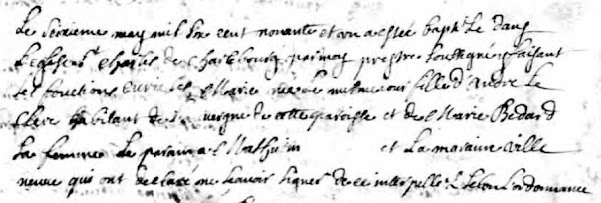 Le seizieme may mil six cent nonante et un a estée baptisée dans
l'eglise st Charles de Charlebourg par moy prestre soussigné faisant
les fonctions curiales Marie née le mesme jour fille d'André le
Clerc habitant de auvergne de cette paroisse et de Marie Bedard
sa femme Le parain a Mathurin et la maraine Ville
neuve qui ont declaré ne scavoir signer de ce interpellés selon l'ordonnance